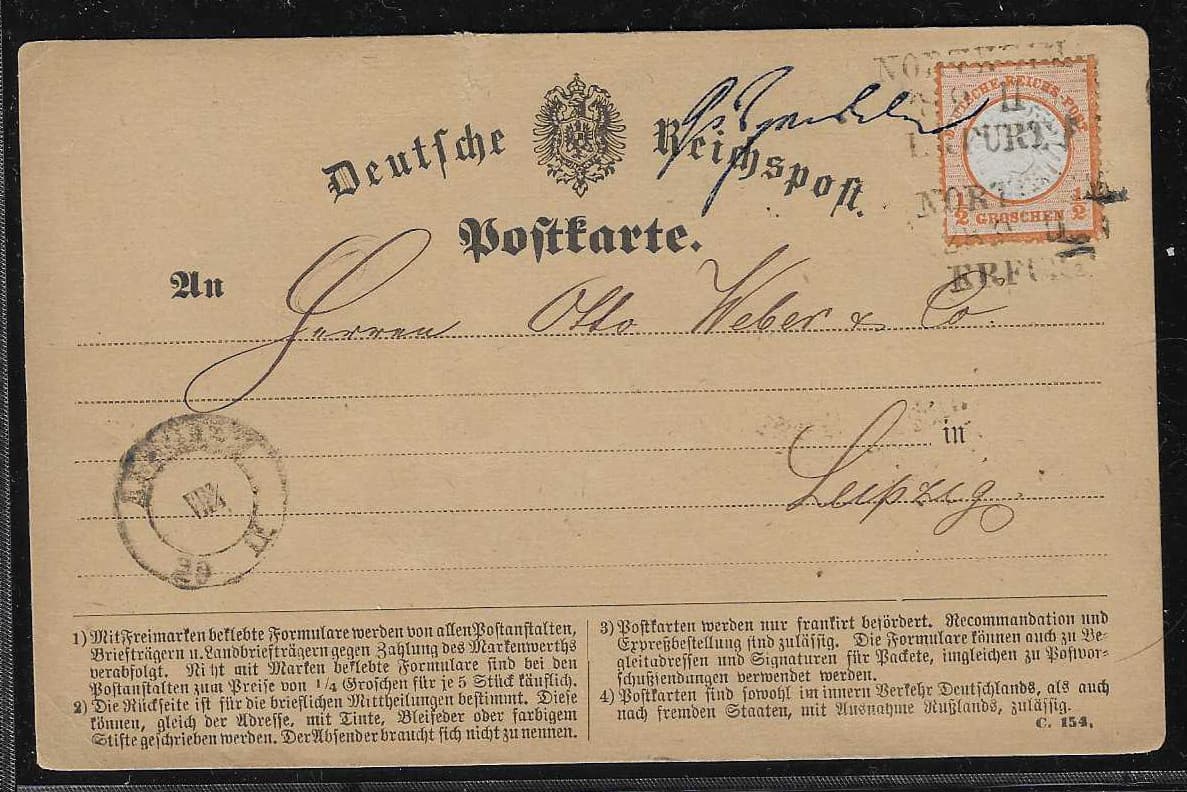 Deutsche Reichspost.
Postkarte.
NORTHEIM
11
ERFURT
DEUTSCHE REICHS-POST
1/2 GROSCHEN 1/2
NORT
11
ERFURT
An Herren Otto Weber & Co.
in
Leipzig.
VIII
II
1) Mit Freimarken beklebte Formulare werden von allen Postanstalten,
Briefträgern u. Landbriefträgern gegen Zahlung des Markenwerths
verabfolgt. Nicht mit Marken beklebte Formulare sind bei den
Postanstalten zum Preise von 1/4 Groschen für je 5 Stück käuflich.
2) Die Rückseite ist für die brieflichen Mittheilungen bestimmt. Diese
können, gleich der Adresse, mit Tinte, Bleifeder oder farbigem
Stifte geschrieben werden. Der Absender braucht sich nicht zu nennen.
3) Postkarten werden nur frankirt befördert. Recommandation und
Expreßbestellung sind zulässig. Die Formulare können auch zu Be-
gleitadressen und Signaturen für Packete, imgleichen zu Postvor-
schußsendungen verwendet werden.
4) Postkarten sind sowohl im innern Verkehr Deutschlands, als auch
nach fremden Staaten, mit Ausnahme Rußlands, zulässig.
C. 154.